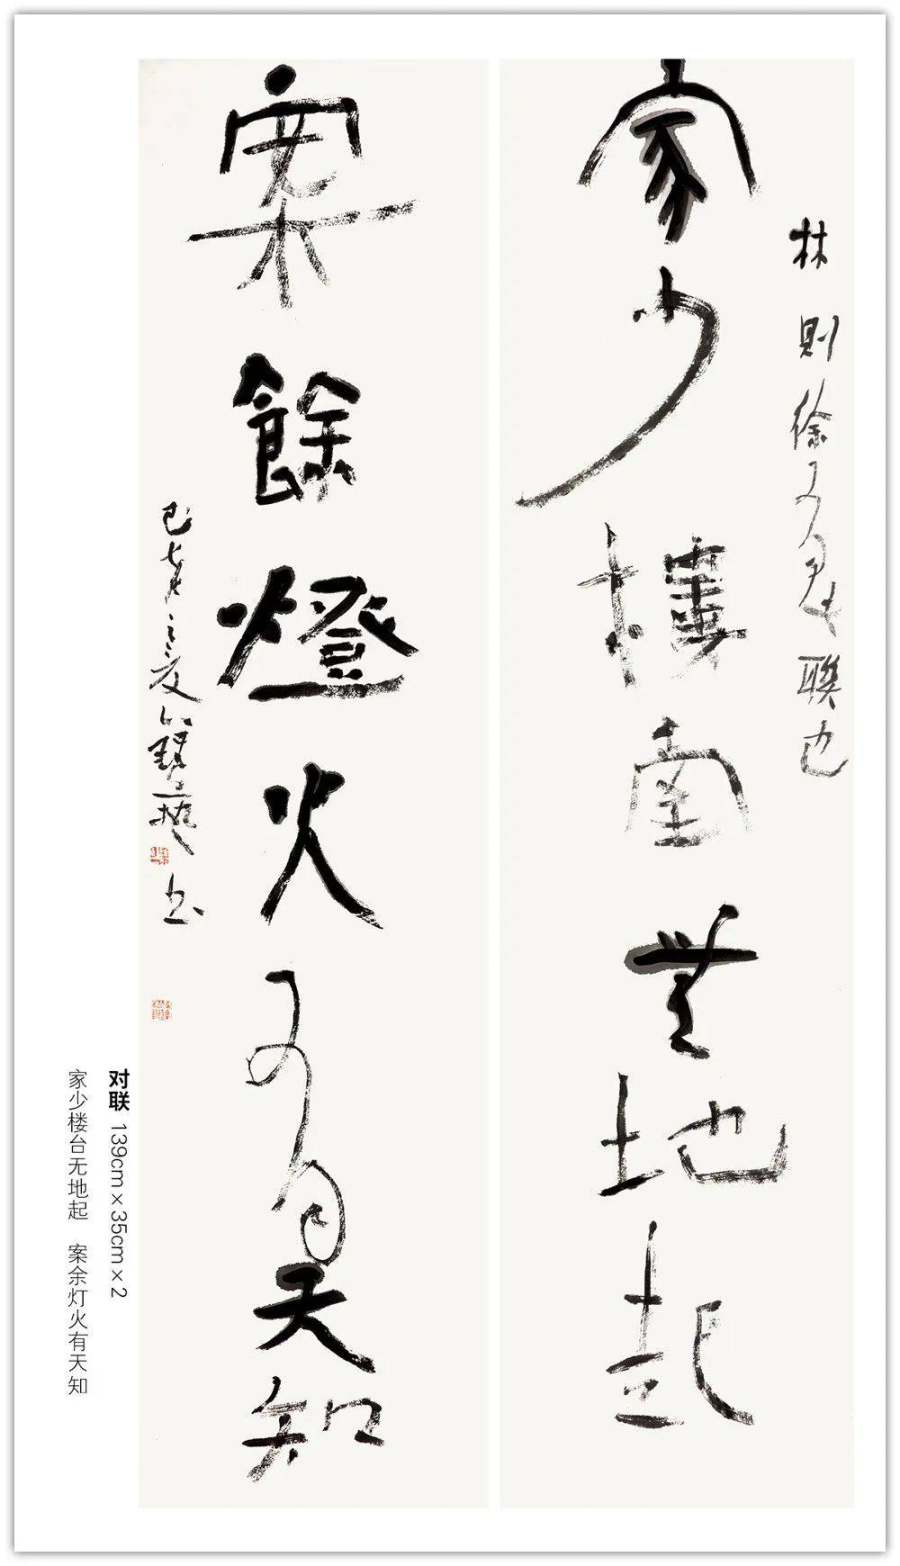 林則徐聯也
家少樓臺無地起
案餘燈火有天知
之夏書
对联 139cm×35cm×2
家少楼台无地起 案余灯火有天知